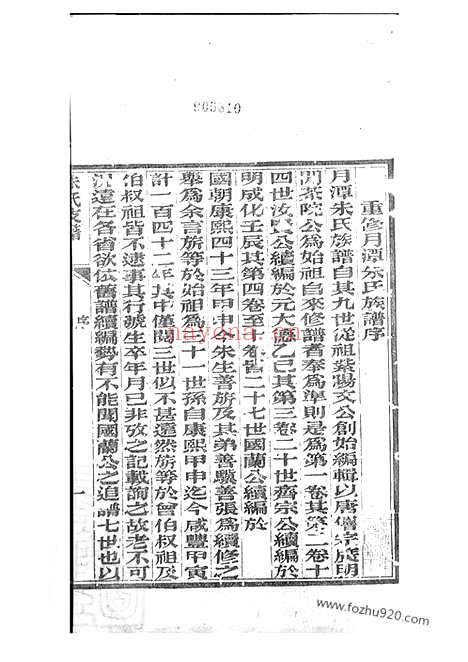 906310
重修月潭朱氏族譜序
月潭朱氏族譜自其九世從祖紫陽文公創始編輯以唐僖宗歲明
茶院公為始祖自來修譜者奉為準則是為第一卷其第二卷十
四世汝公續編於元大乙巳其第三卷二十世齋宗公續編於
明成化壬辰其第四卷至卷二十七世國蘭公續編於
國朝康熙四十三年甲申今朱生善旂及其弟善驥善張為續修之
舉為余言旂等於始祖為三十一世孫自康熙甲申迄今咸豐甲寅
計一百四十二年其中僅閱三世似不甚遠然旂等於曾伯叔祖及
伯叔祖皆不逮事其行號生卒年月已非攷之記載詢之故老不可
遠在各省欲依舊譜續編勢有不能聞國蘭公之追譜七世也以
朱氏支譜
序
一
nayona.cn
www.fozhu920.com